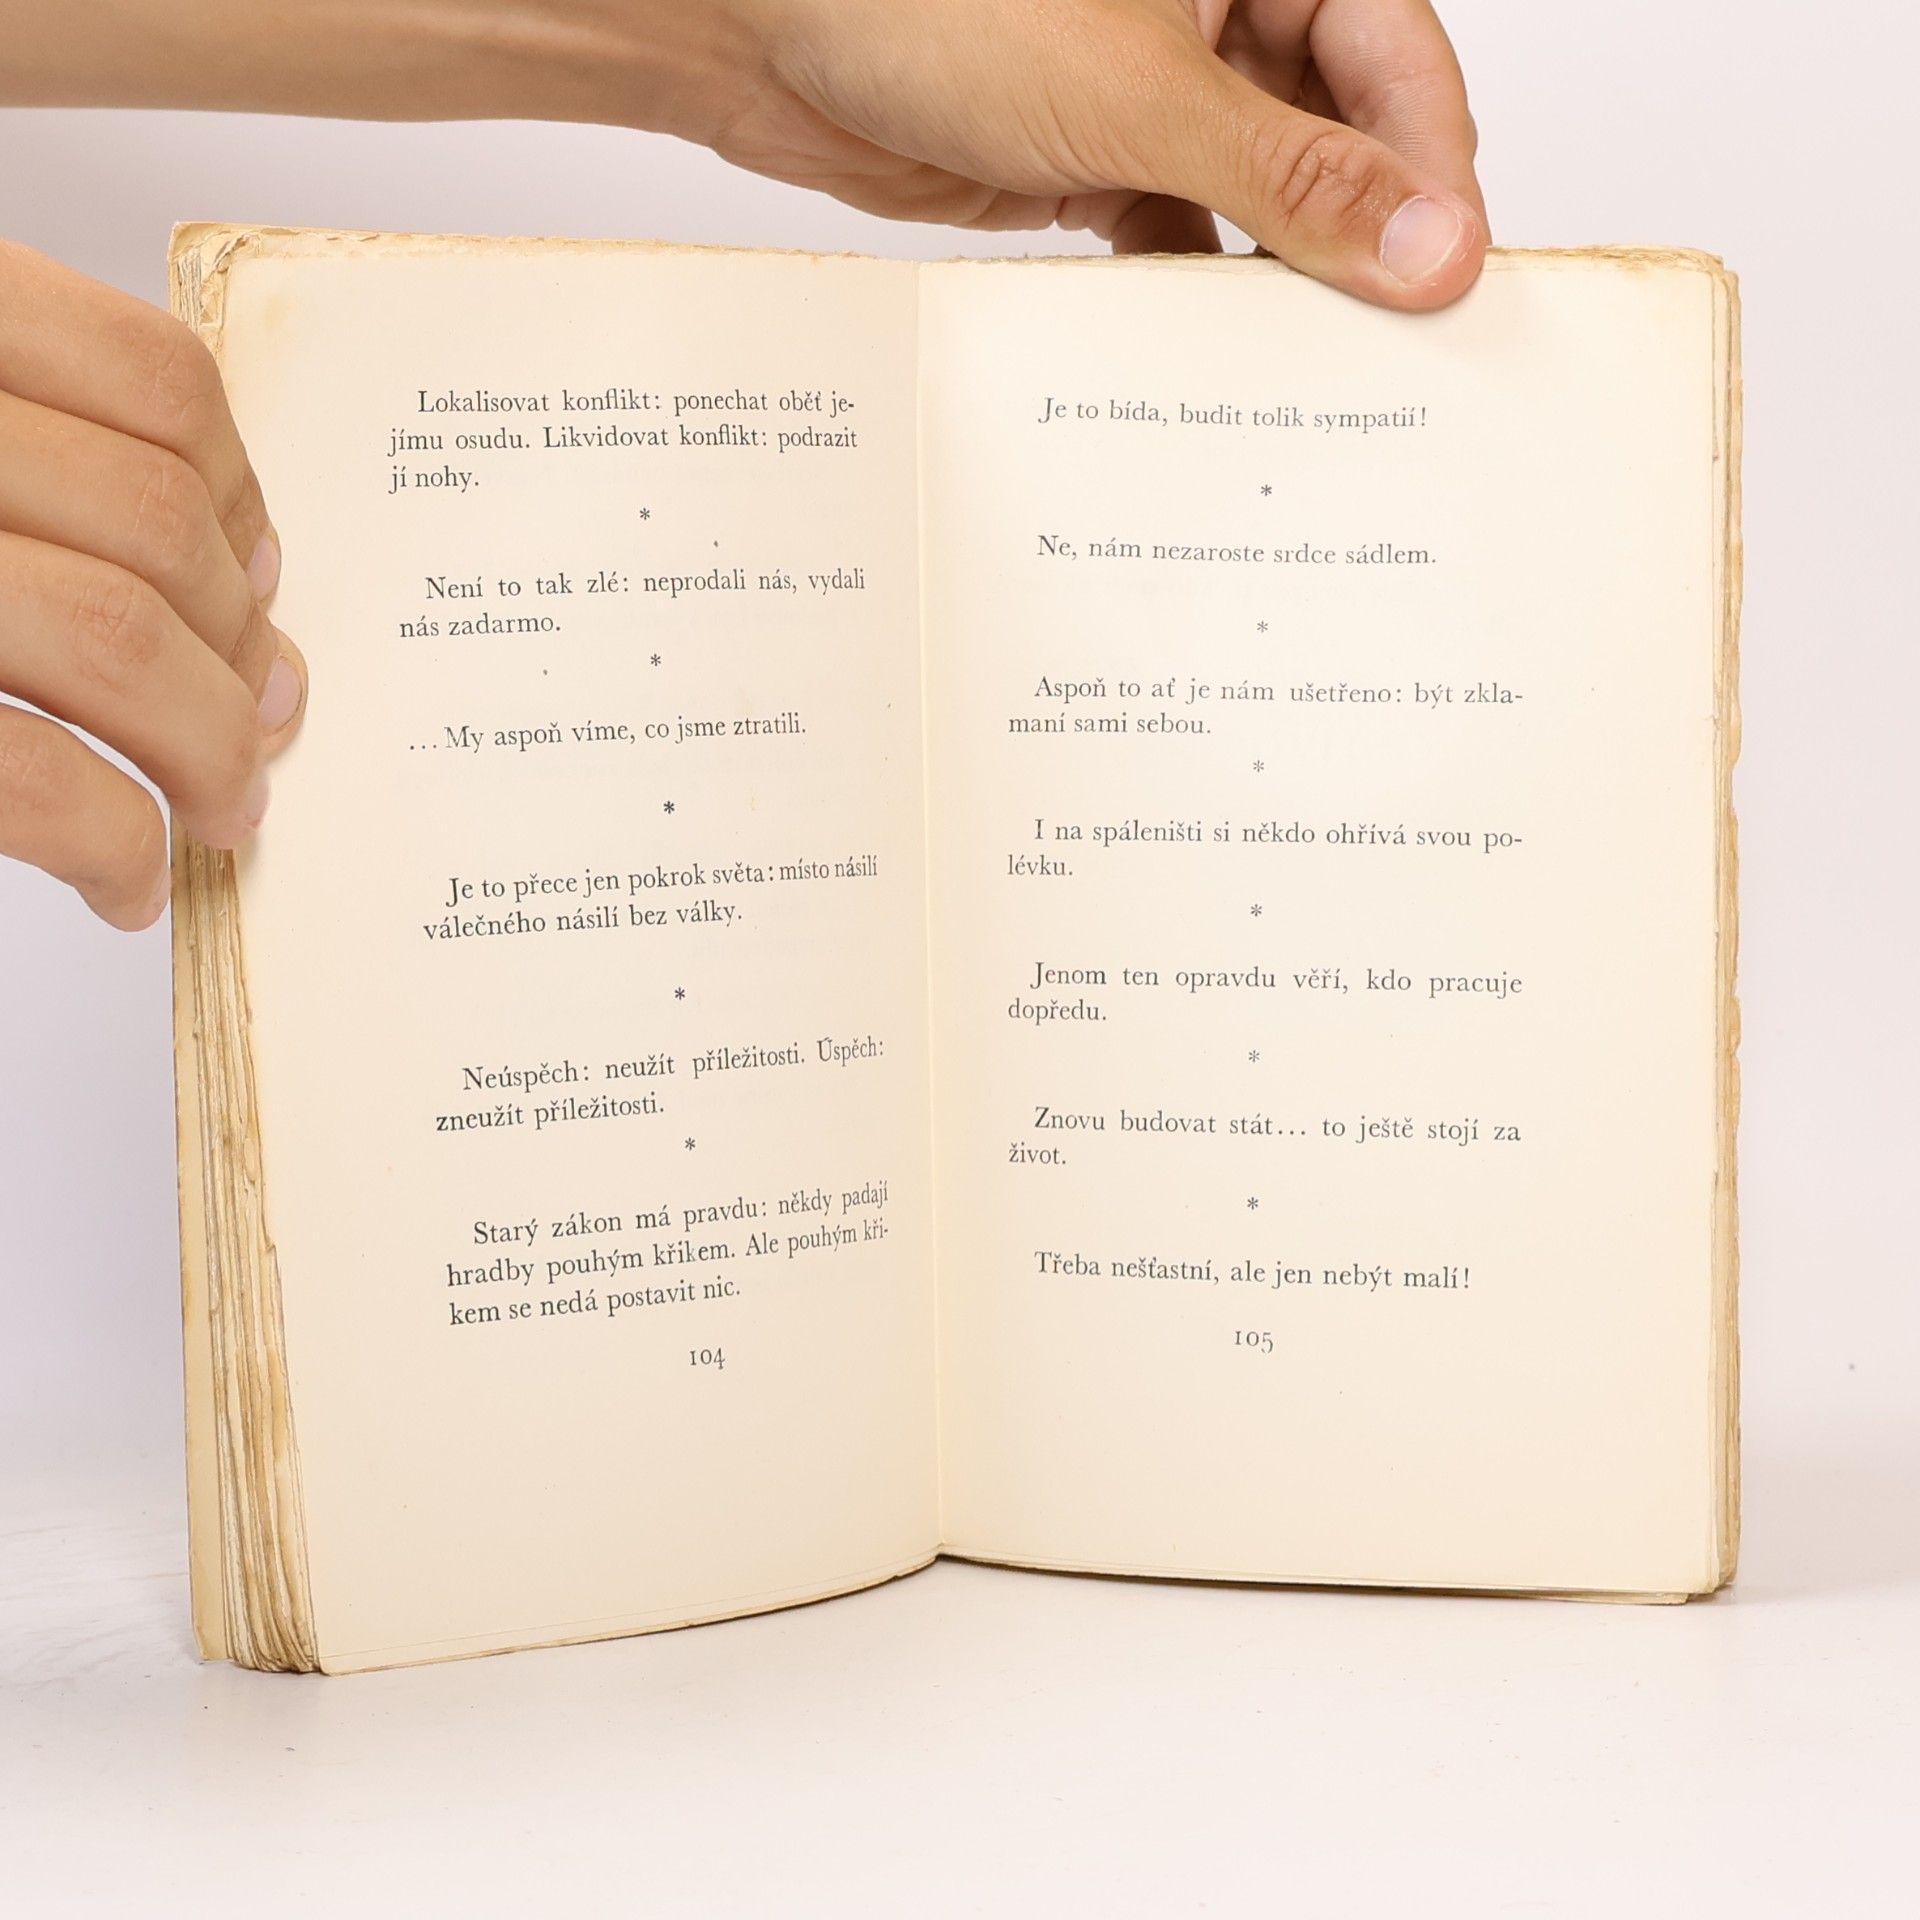 Lokalisovat konflikt: ponechat oběť je-
jímu osudu. Likvidovat konflikt: podrazit
jí nohy.
*
Není to tak zlé: neprodali nás, vydali
nás zadarmo.
*
... My aspoň víme, co jsme ztratili.
*
Je to přece jen pokrok světa: místo násilí
válečného násilí bez války.
*
Neúspěch: neužít příležitosti. Úspěch:
zneužít příležitosti.
*
Starý zákon má pravdu: někdy padají
hradby pouhým křikem. Ale pouhým kři-
kem se nedá postavit nic.
104
Je to bída, budit tolik sympatií!
*
Ne, nám nezaroste srdce sádlem.
*
Aspoň to ať je nám ušetřeno: být zkla-
maní sami sebou.
*
I na spáleništi si někdo ohřívá svou po-
lévku.
*
Jenom ten opravdu věří, kdo pracuje
dopředu.
*
Znovu budovat stát... to ještě stojí za
život.
*
Třeba nešťastní, ale jen nebýt malí!
105